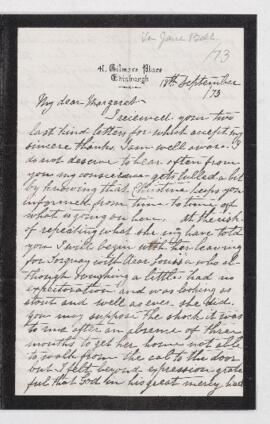 Jane Bell
/73
41, Gilmore Place
Edinburgh
18th September
/73
My dear Margaret
I received your two
last kind letters for which accept my
sincere thanks I am well aware I
do not deserve to hear often from
you my conscience gets lulled a bit
by knowing that Christina keeps you
informed from time to time of
what is going on here. At the risk
of repeating what she may have told
you I will begin with her leaving
for Torquay with dear Louisa who al-
though Coughing a little, had no
expectoration and was looking as
stout and well as ever she did.
You may suppose the shock it was
to me after an absence of three
months to get her home not able
to walk from the cab to the door
but I felt beyond expression grate-
ful that God in his great mercy had